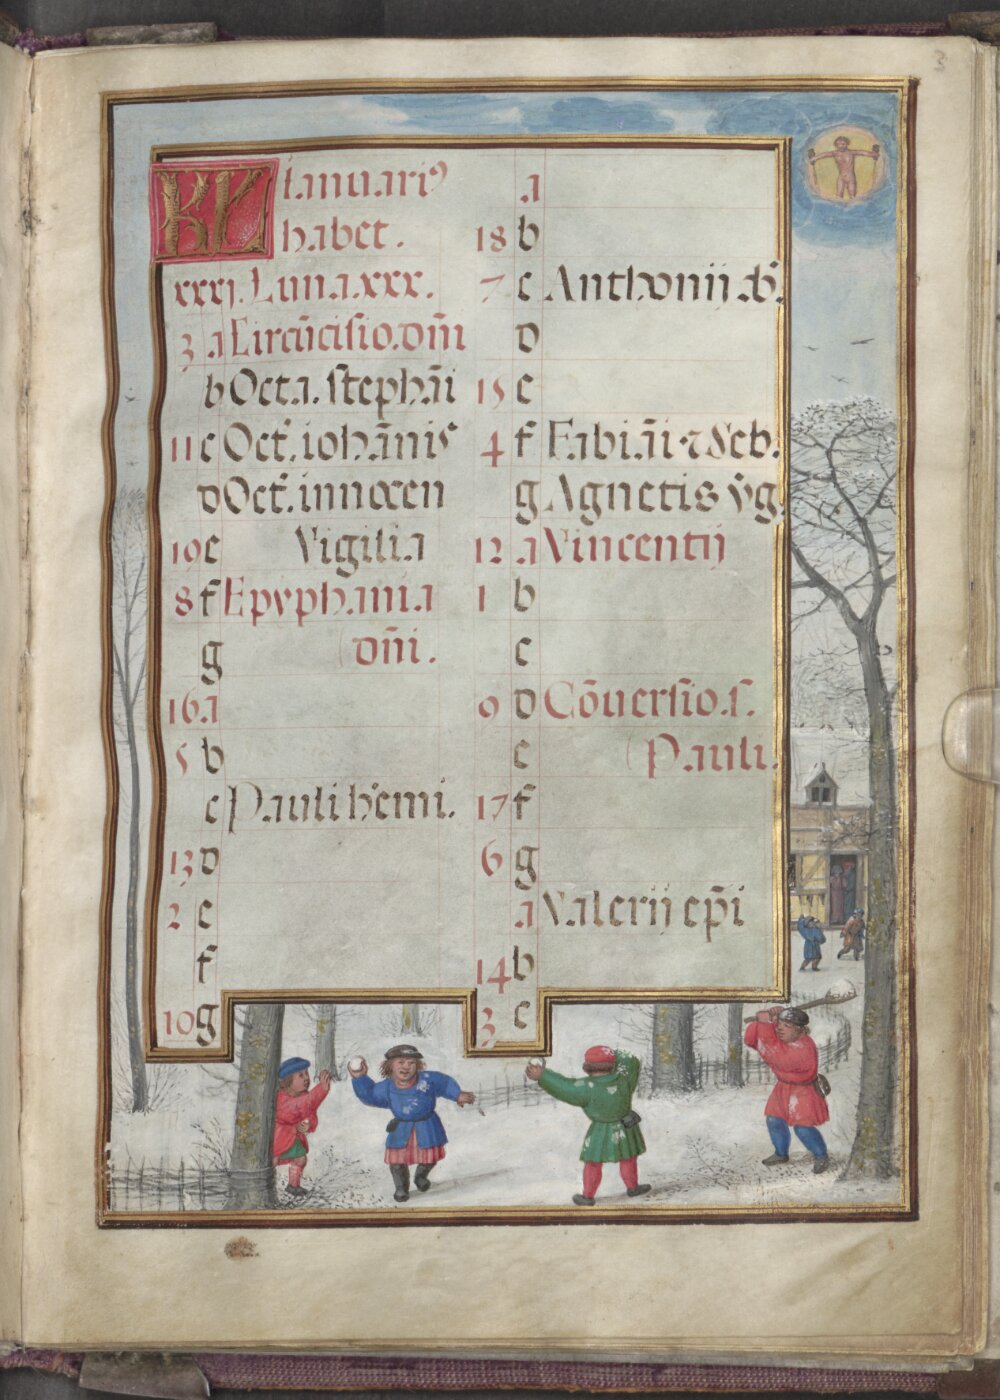 KL Ianuari⁹
habet.
xxxj. Luna.xxx.
3 a Circũcisio.dñi
b Octa. stephãi
11 c Oct̃. iohãnis
d Oct̃. innocen
19 e Vigilia
8 f Epyphania
g dñi.
16 a
5 b
c Pauli h̾emi.
13 d
2 e
f
10 g
a
18 b
7 c Anthonij ab̃.
d
15 e
4 f Fabiãi ⁊ Seb.
g Agnetis ṽg.
12 a Vincentij
1 b
c
9 d Cõuersio.s.
e Pauli.
17 f
6 g
a Valerij ep̃i
14 b
3 c
3